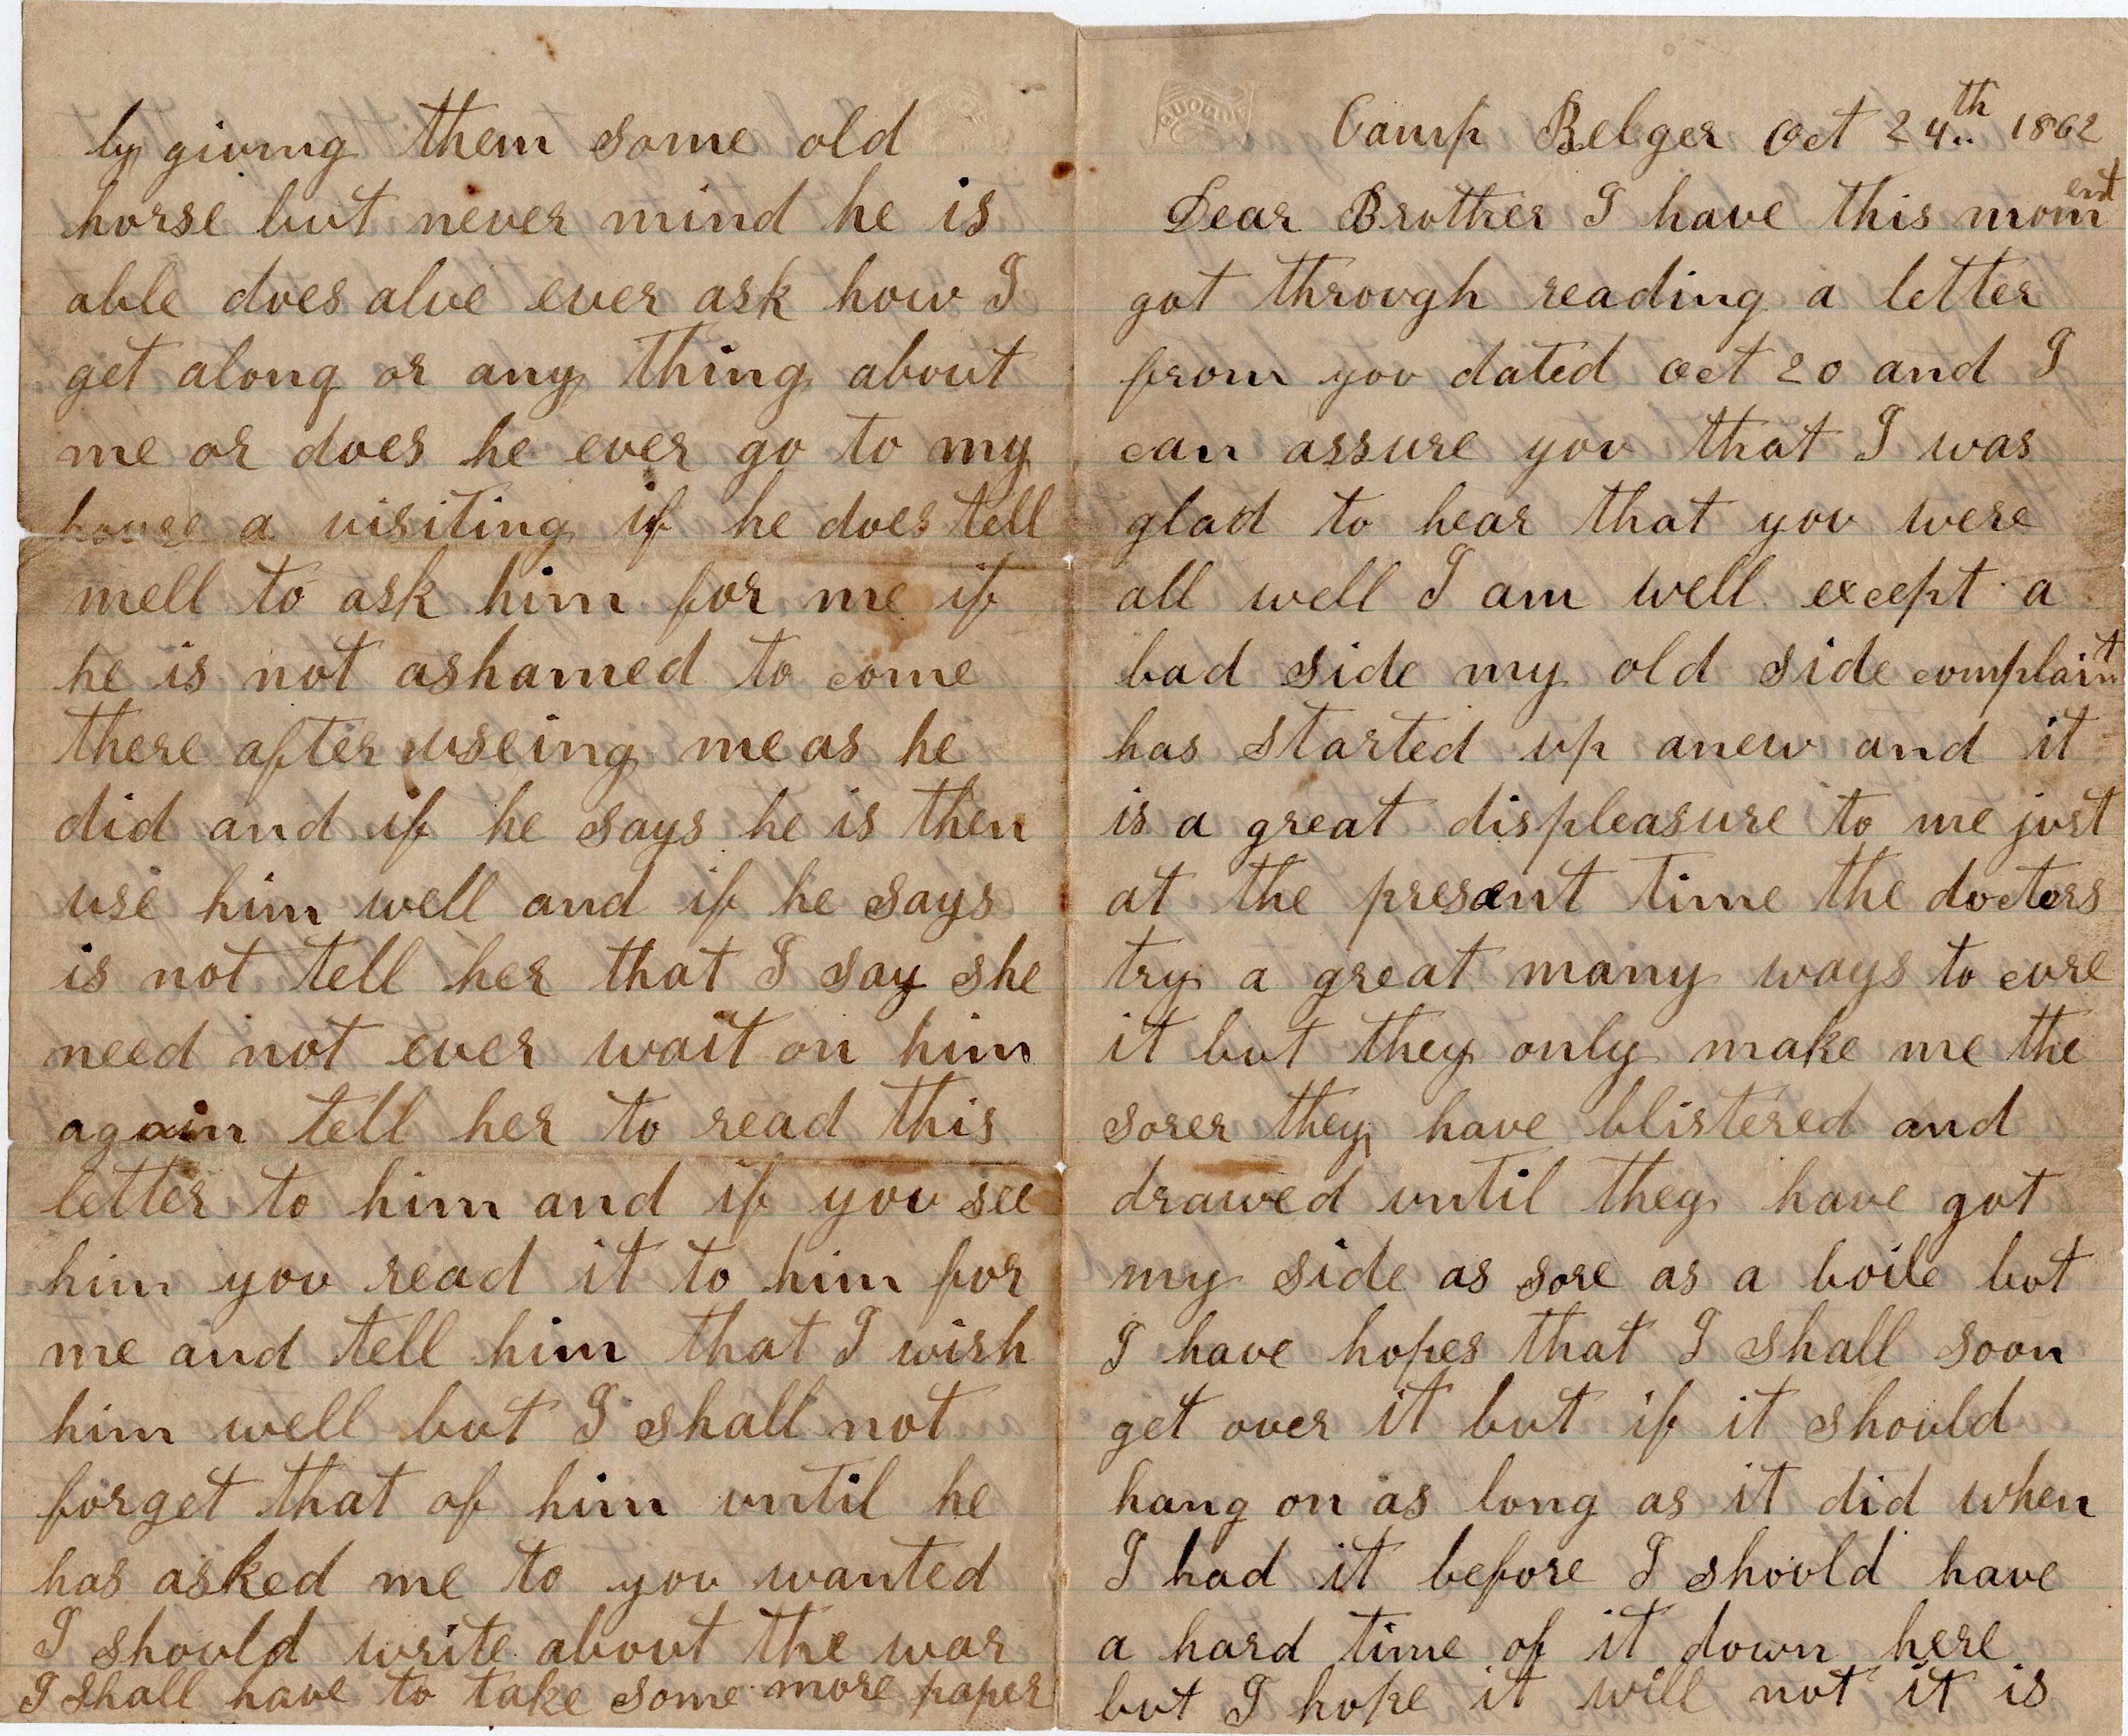 Camp Belger Oct 24th 1862
Dear Brother I have this moment
got through reading a letter
from you dated Oct 20 and I
can assure you that I was
glad to hear that you were
all well I am well except a
bad side my old side complaint
has started up anew and it
is a great displeasure to me just
at the present time the docters
try a great many ways to cure
it but they only make me the
sorer they have blistered and
drawed until they have got
my side as sore as a boile but
I have hopes that I shall soon
get over it but if it should
hang on as long as it did when
I had it before I should have
a hard time of it down here
but I hope it will not it is
by giving them some old
horse but never mind he is
able does alve ever ask how I
get along or any thing about
me or does he ever go to my
house a visiting if he does tell
mell to ask him for me if
he is not ashamed to come
there after useing me as he
did and if he says he is then
use him well and if he says
is not tell her that I say she
need not ever wait on him
again tell her to read this
letter to him and if you see
him you read it to him for
me and tell him that I wish
him well but I shall not
forget that of him until he
has asked me to you wanted
I should write about the war
I shall have to take some more paper